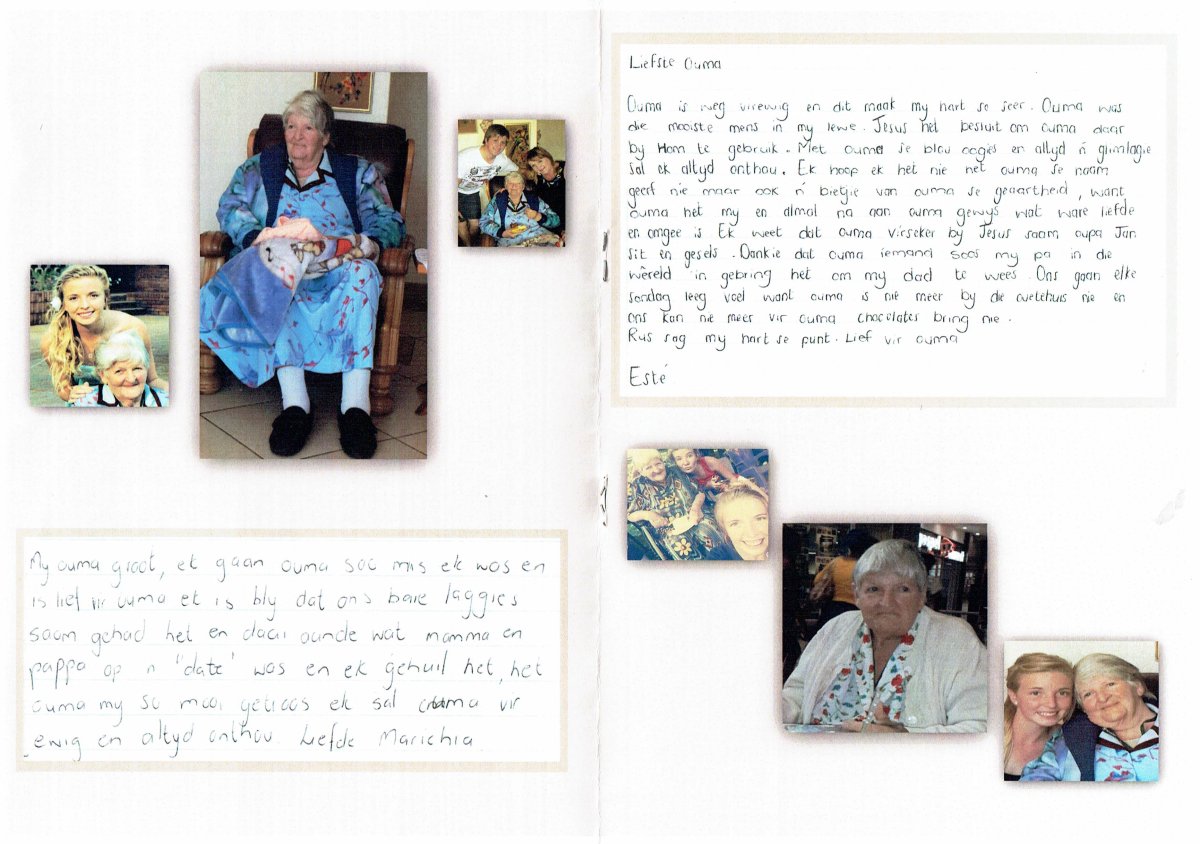 My ouma groot, ek gaan ouma soo mis ek was en
is lief vir ouma ek is bly dat ons baie laggies
saam gehad het en daai aande wat mamma en
pappa op n "date" was en ek gehuil het, het
ouma my so mooi getroos ek sal ouma vir
ewig en altyd onthou Liefde Marichia
Liefste Ouma
Ouma is weg virewig en dit maak my hart se seer. Ouma was
die mooiste mens in my lewe. Jesus het besluit om ouma daar
by Hom te gebruik. Met ouma se blou oogies en altyd 'n glimlagie
sal ek altyd onthou. Ek hoop ek het nie net ouma se naam
geerf nie maar ook 'n bietjie van ouma se geaartheid, want
ouma het my en almal na aan ouma gewys wat ware liefde
en omgee is Ek weet dat ouma virseker by Jesus saam oupa Jan
sit en gesels. Dankie dat ouma iemand soos my pa in die
wêreld in gebring het om my dad te wees. Ons gaan elke
sondag leeg voel want ouma is nie meer by die ouetehuis nie en
ons kan nie meer vir ouma chocolates bring nie.
Rus sag my hart se punt. Lief vir ouma
Esté